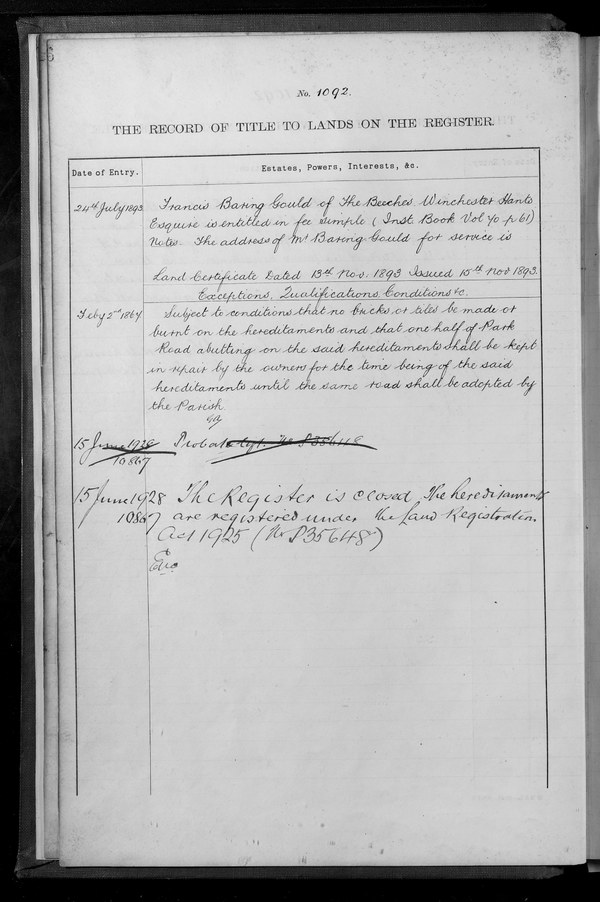 No. 1092.
THE RECORD OF TITLE TO LANDS ON THE REGISTER.
Date of Entry.
Estates, Powers, Interests, &c.
24th July 1893
Francis Baring Gould of The Beeches Winchester Hants
Esquire is entitled in fee simple (Inst. Book Vol 40 p 61)
Notes. The address of Mr Baring Gould for service is
Land Certificate Dated 13th Nov. 1893 Issued 15th Nov 1893.
Exceptions, Qualifications, Conditions &c.
Feby 2nd 1864
Subject to conditions that no bricks or tiles be made or
burnt on the hereditaments and that one half of Park
Road abutting on the said hereditaments shall be kept
in repair by the owners for the time being of the said
hereditaments until the same road shall be adopted by
the Parish.
15 June 1928
10867
15 June 1928 The Register is closed, the hereditaments
10867 are registered under the Land Registration
Act 1925 (No P35648)